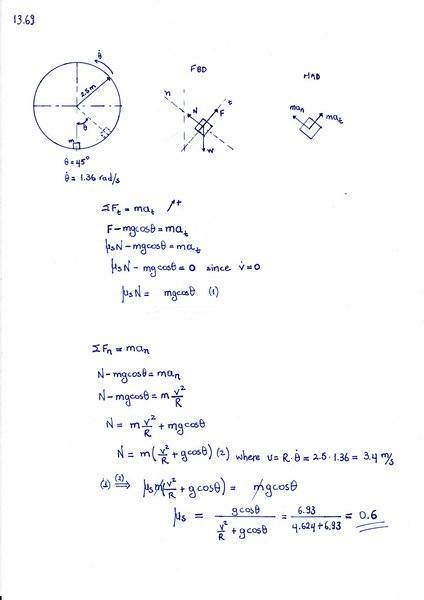 13.69
FBD
MAD
θ̇
2.5m
θ
m
n
t
N
F
W
ma_n
ma_t
θ = 45°
θ̇ = 1.36 rad/s
ΣF_t = ma_t ↗+
F - mgcosθ = ma_t
μ_s N - mgcosθ = ma_t
μ_s N - mgcosθ = 0 since v̇ = 0
μ_s N = mgcosθ (1)
ΣF_n = ma_n
N - mgcosθ = ma_n
N - mgcosθ = m v²/R
N = m v²/R + mgcosθ
N = m(v²/R + gcosθ) (2) where v = R·θ̇ = 2.5·1.36 = 3.4 m/s
(1) (2)⟹ μ_s m(v²/R + gcosθ) = mgcosθ
μ_s = gcosθ / (v²/R + gcosθ) = 6.93 / (4.624+6.93) = 0.6